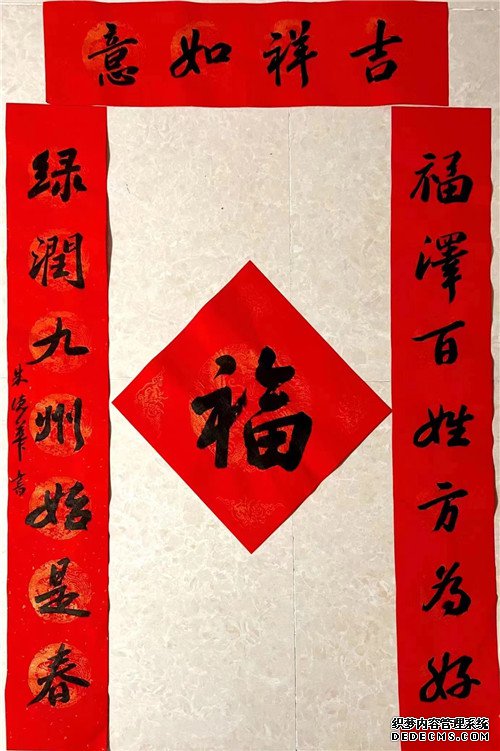 吉祥如意
福澤百姓方為好
绿潤九州始是春
福
朱德華书
织梦内容管理系统
DEDECMS.COM